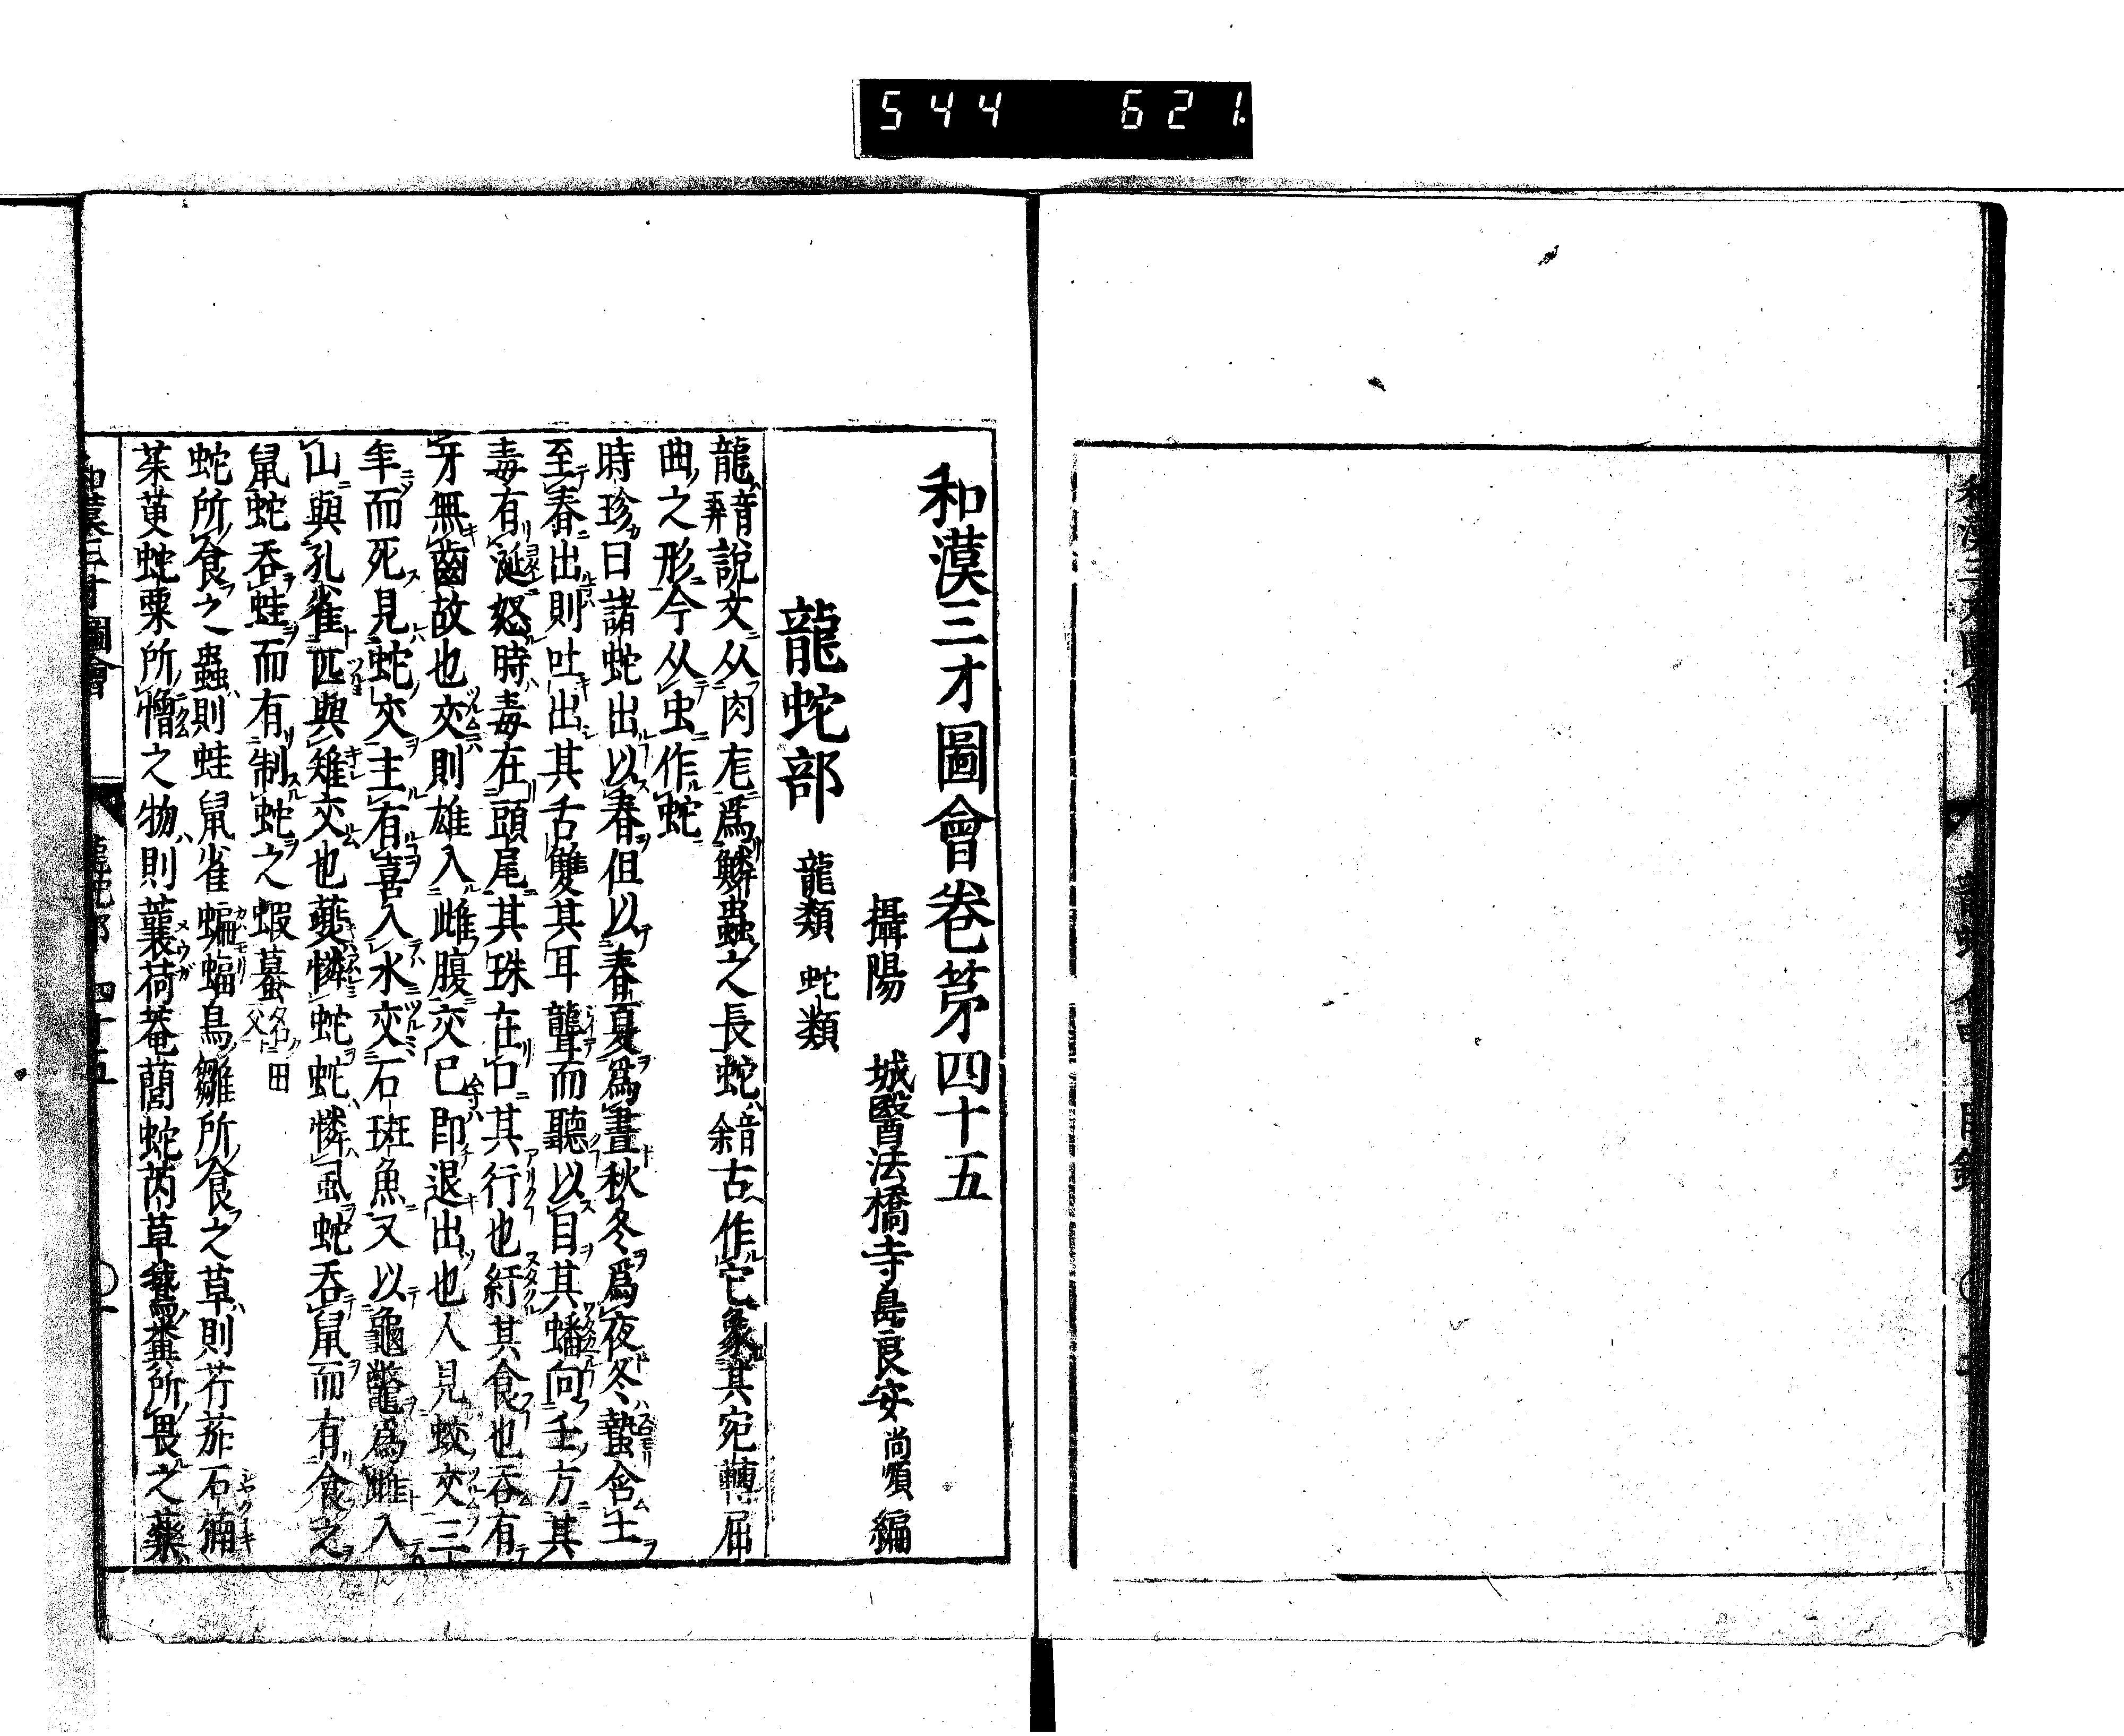 544 621
和漢三才圖會卷第四十五
攝陽 城醫法橋寺島良安尚順 編
龍蛇部 龍類 蛇類
龍音說文从肉為鱗蟲之長蛇音余古作它象其宛轉屈
曲之形今从虫作蛇
時珍曰諸蛇出以春但以春夏為晝秋冬為夜冬蟄含土
至春出則吐出其舌雙其耳聾而聽以目其蟠向壬方其
毒有涎怒時毒在頭尾其珠在口其行也紆其食也吞有
牙無齒故也交則雄入雌腹交已即退出也人見蛟交三
年而死見蛇交主有喜入水交石斑魚又以龜鼈為雌入
山與孔雀匹與雉交也夔憐蛇蛇憐風蛇吞鼠而有食之
鼠蛇吞蛙而有制蛇之蝦蟇名田父
蛇所食之蟲則蛙鼠雀蝙蝠鳥雛所食之草則芹茄石楠
茱萸蛇粟所憎之物則蘘荷菴䕡蛇芮草鵞糞所畏之藥